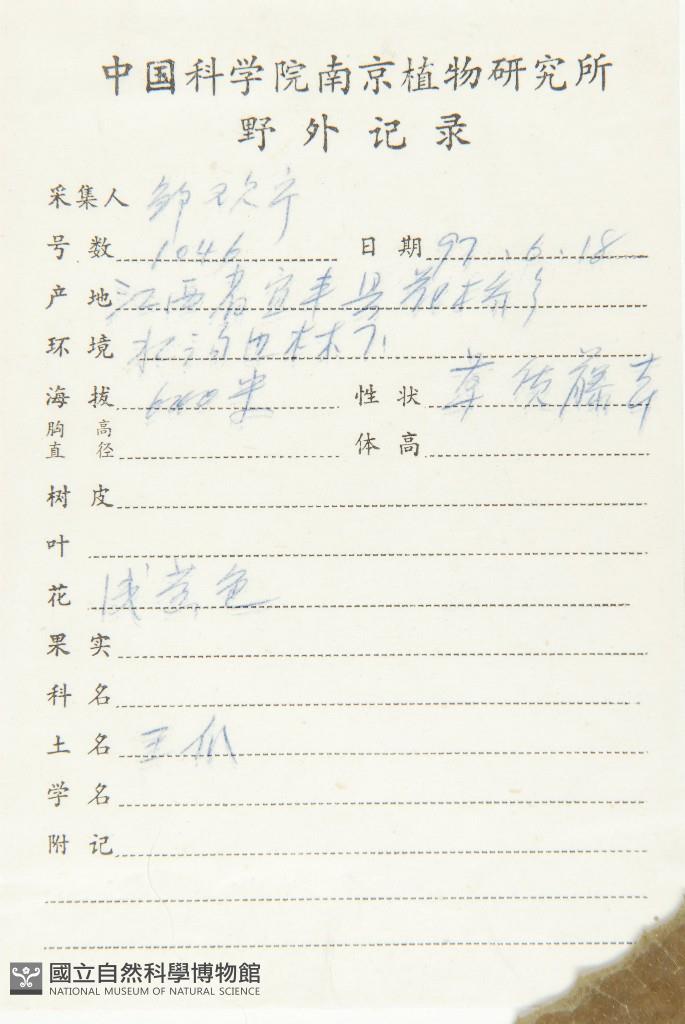 中国科学院南京植物研究所
野外记录
采集人 邹
号数 1046 日期 97.6.18
产地 江西省宜丰县
环境 林下
海拔 米 性状 草质藤本
胸高直径 体高
树皮
叶
花 浅黄色
果实
科名
土名 王瓜
学名
附记
國立自然科學博物館
NATIONAL MUSEUM OF NATURAL SCIENCE